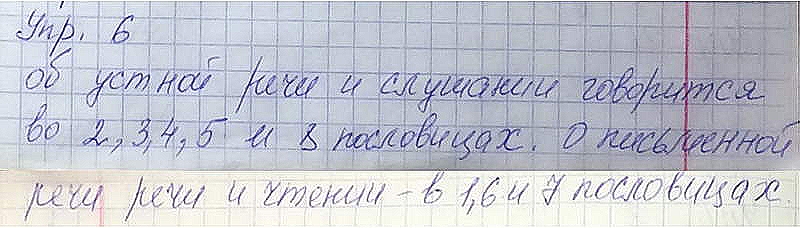 Упр. 6
об устной речи и слушании говорится
во 2,3,4,5 и 8 пословицах. О письменной
речи речи и чтении - в 1,6 и 7 пословицах.